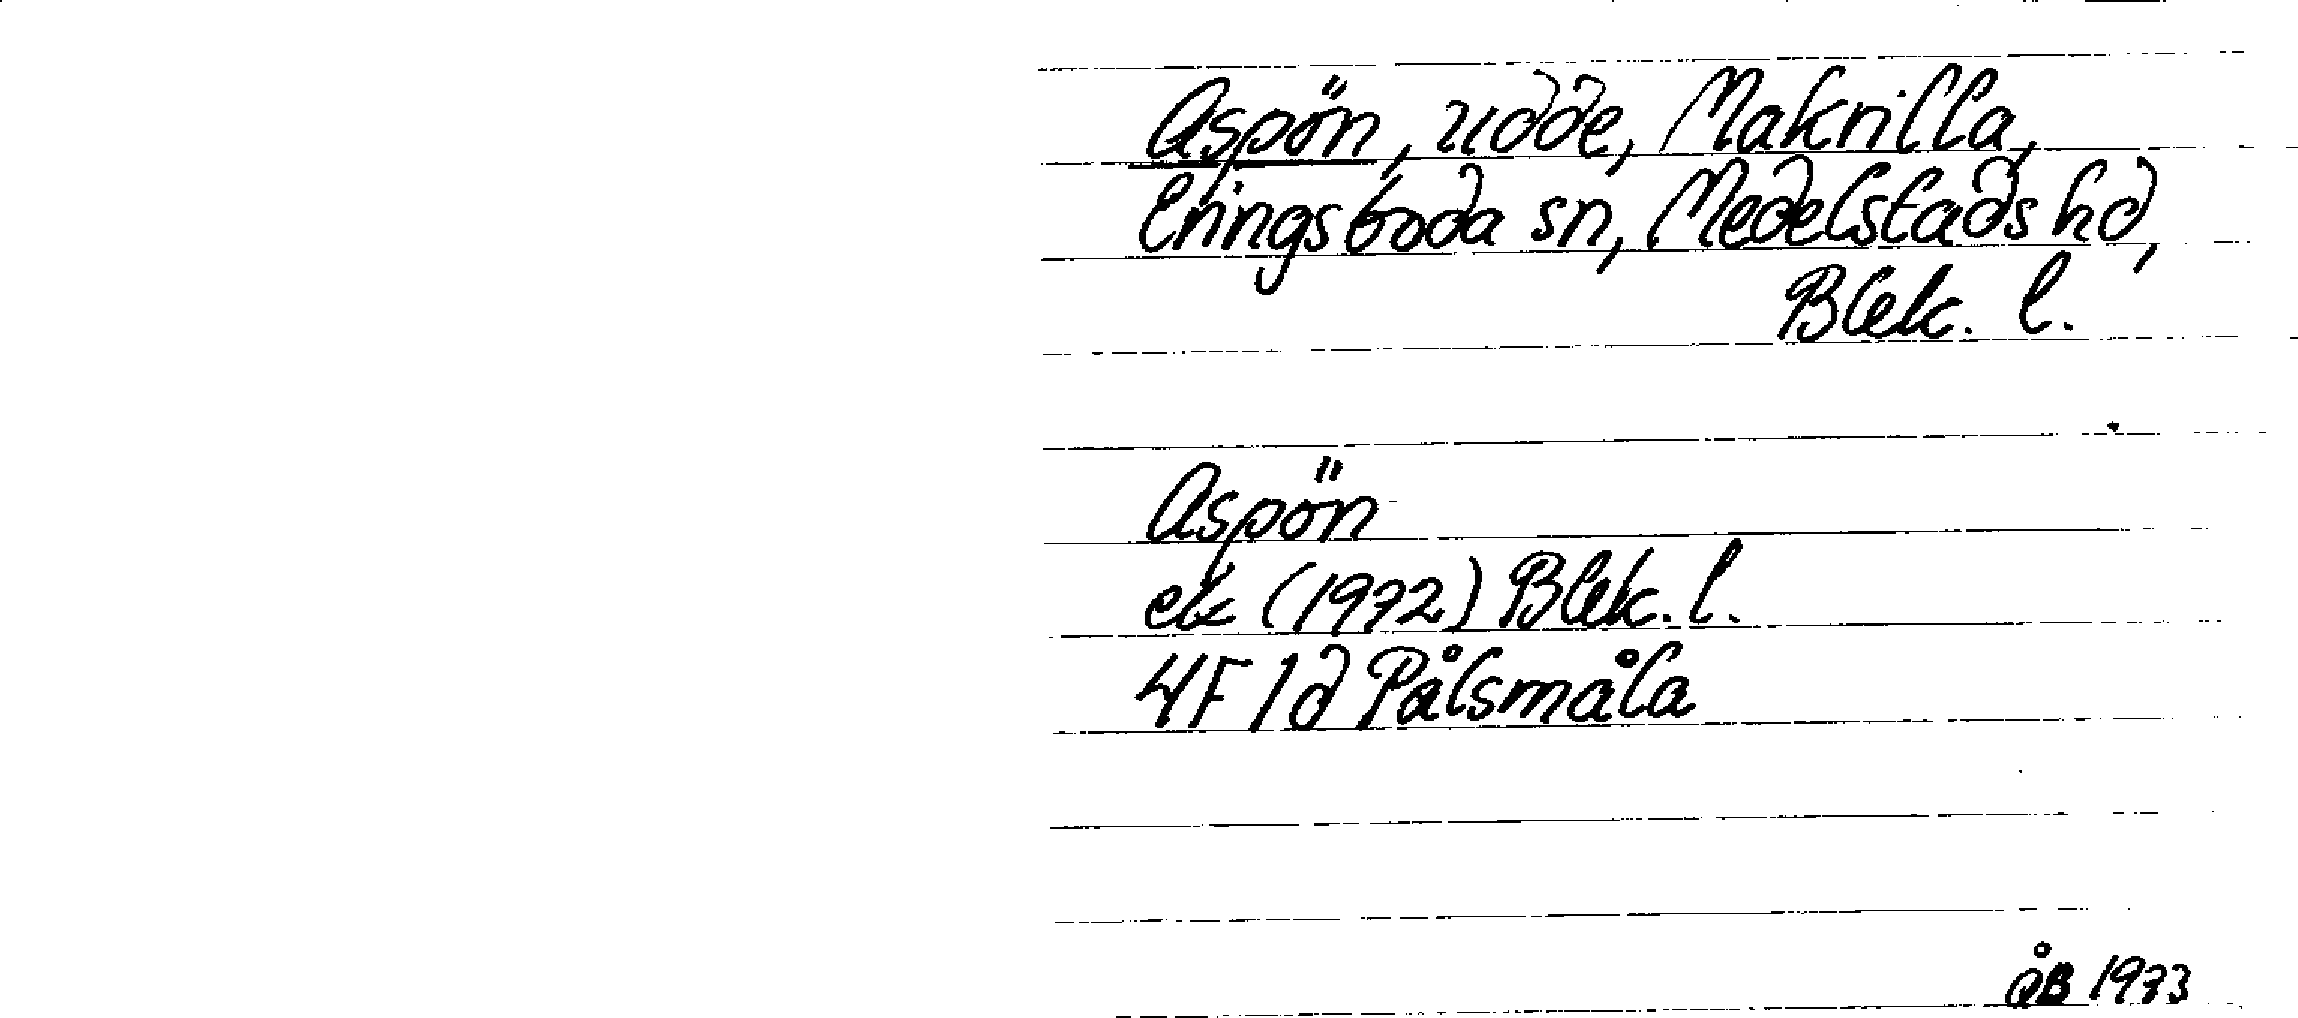 Aspön, udde, Makrilla,
Eringsboda sn, Medelstads hd,
Blek. l.
Aspön
ek (1972) Blek. l.
4F 1d Pålsmåla
ÅB 1973